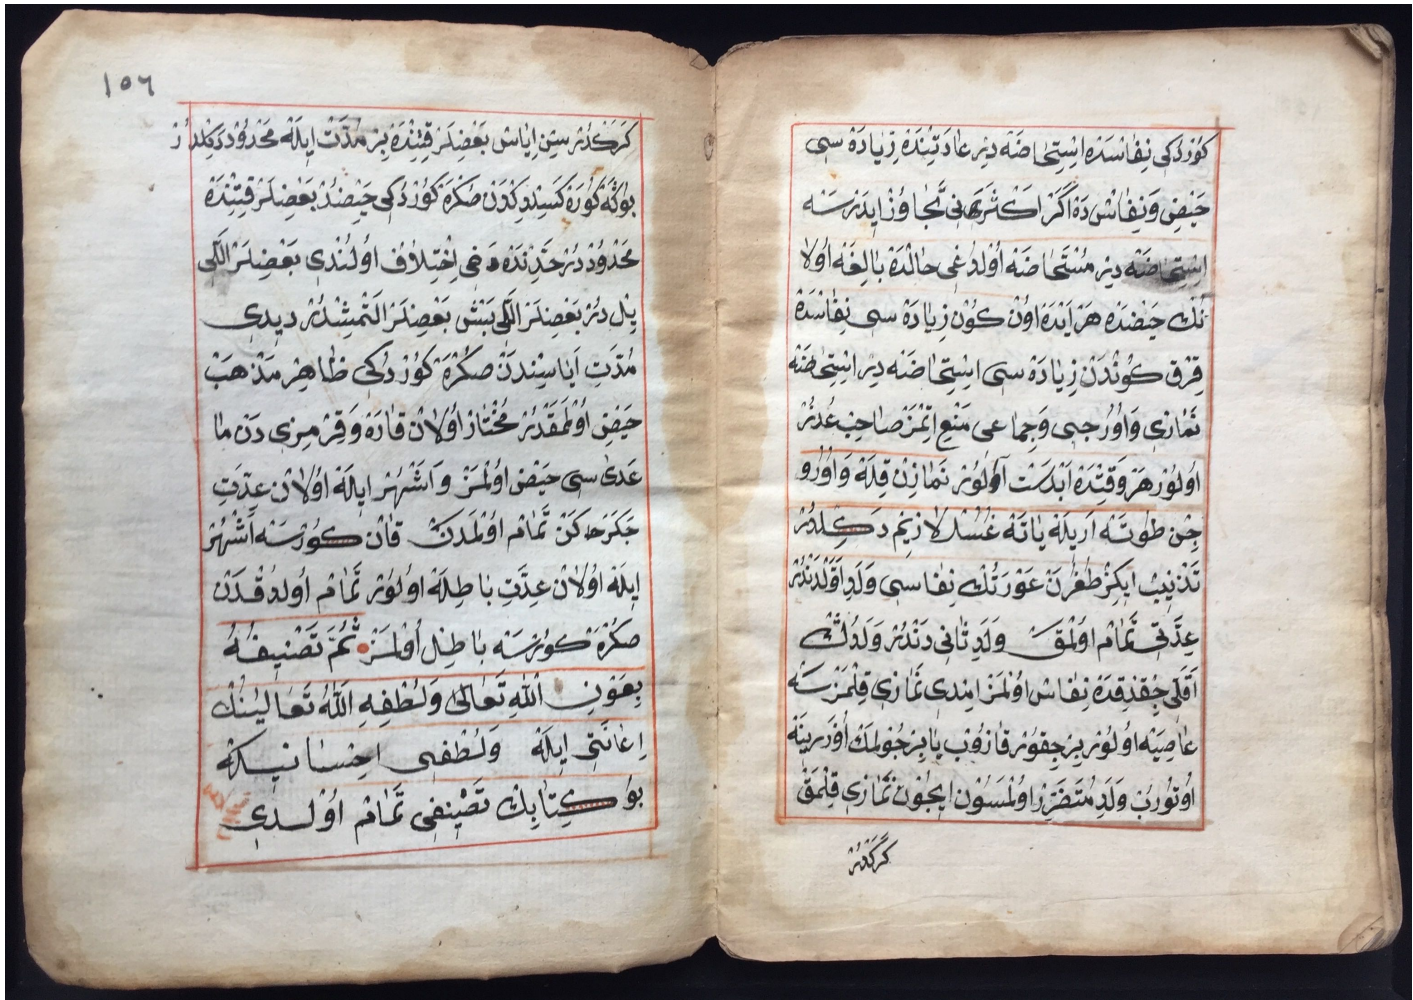 كوردكى نفاسده استحاضه دير عادتنده زياده سى
حيض ونفاس ده اكر اكثرهنى تجاوز ايدرسه
استحاضه دير مستحاضه اولدغى حالده بالغه اولا
نك حيضده هر آيده اون كون زياده سى نفاسده
قرق كوندن زياده سى استحاضه دير استحاضه
نمازى واورجى وجماعى منع اتمز صاحب عذر
اولور هر وقتده ابدست آلور نمازن قله واورو
جن طوته اريله ياته غسل لازم دكلدر
تذنيب ايكز طغرن عورتك نفاسى ولد اولدندر
عدتى تمام اولمق ولد ثانى دندر ولدك
اقلى چقدقده نفاس اولمز ايمدى نمازى قلمزسه
عاصيه اولور بر چقور قازوب يا بر جولمك اوزرينه
اوتورب ولد متضرر اولمسون ايچون نمازى قلمق
كركدر
١٥٦
كركدر سن اياس بعضلر قتنده بر مدت ايله محدود دكلدر
بوكا كوره كسلدكدن صكره كوردكى حيضدر بعضلر قتنده
محدود در حدنده دخى اختلاف اولندى بعضلر اللى
ييل در بعضلر اللى بش بعضلر التمشدر ديدى
مدت اياسندن صكره كوردكى ظاهر مذهب
حيض اولمقدر مختار اولان قاره وقرمزى دن ما
عدى سى حيض اولمز واشهر ايله اولان عدت
چكرحكن تمام اولمدن قان كورسه اشهر
ايله اولان عدت باطله اولور تمام اولدقدن
صكره كورسه باطل اولمز ثم تصنيفه
بعون الله تعالى ولطفه الله تعالينك
اعانتى ايله ولطفى احسانيله
بو كتابك تصنيفى تمام اولدى